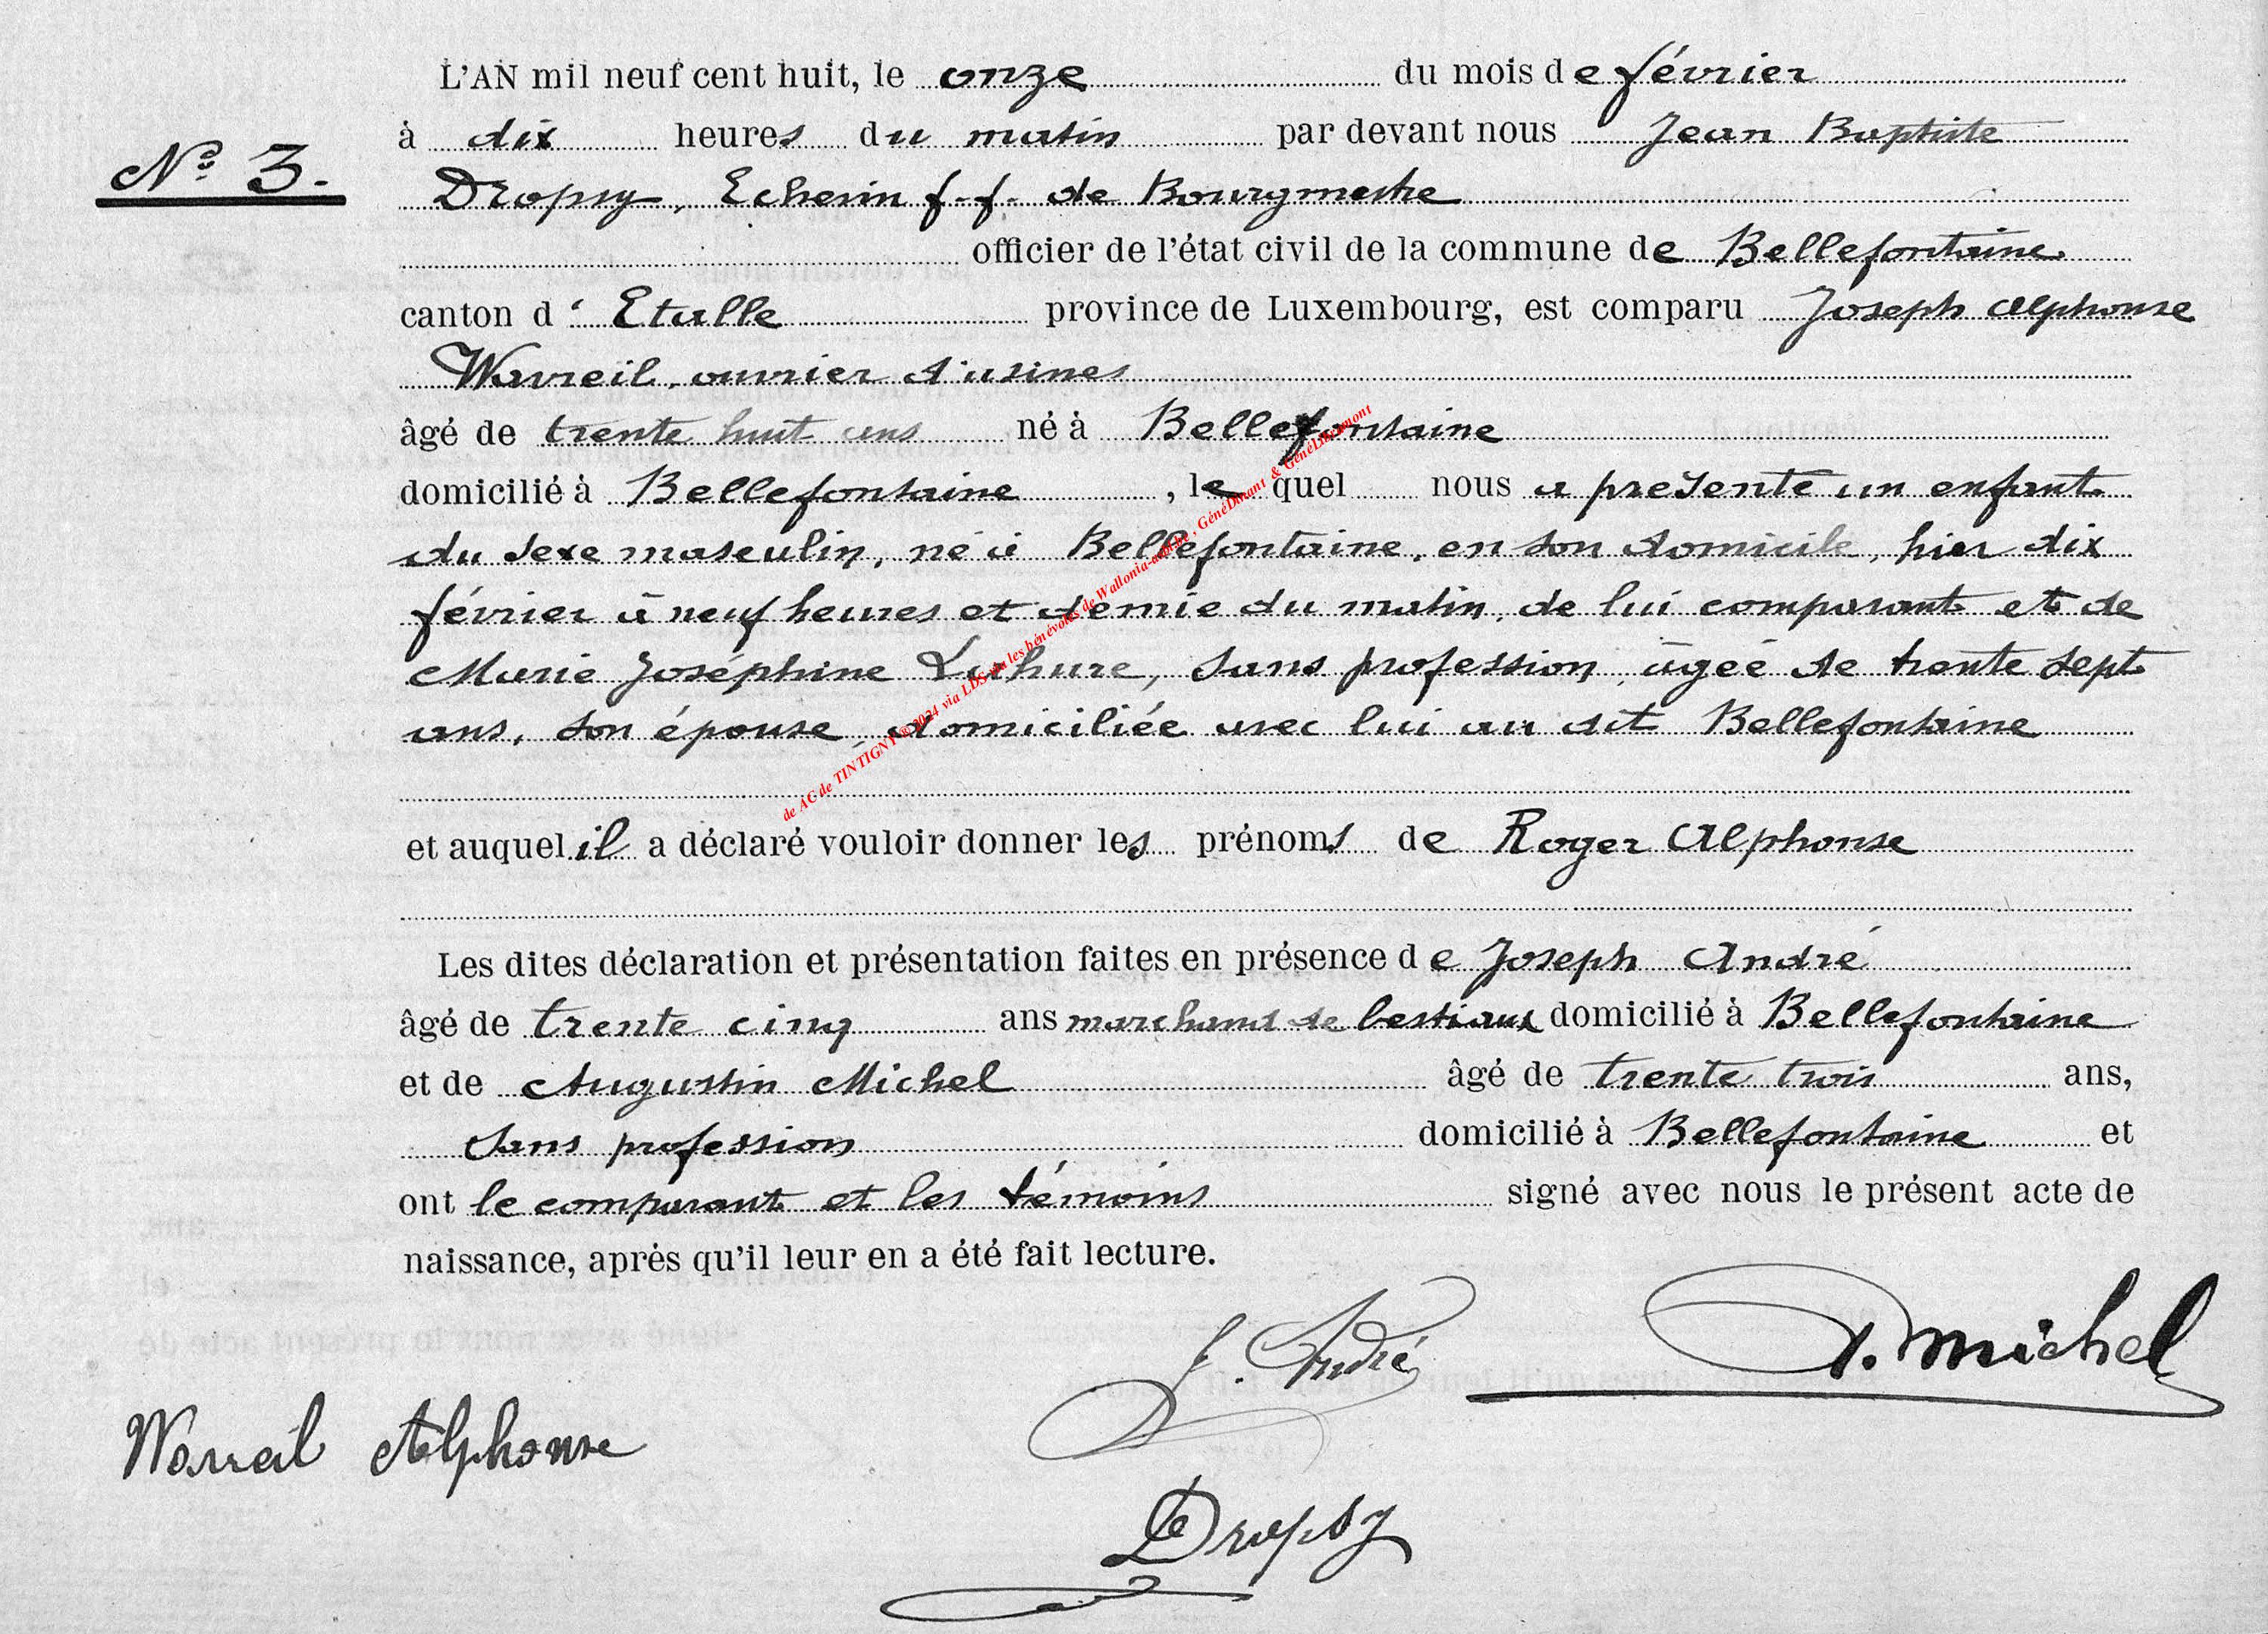 L'AN mil neuf cent huit, le onze du mois de février
à dix heures du matin par devant nous Jean Baptiste
N° 3.
Dropsy, Echevin f.f. de Bourgmestre
officier de l'état civil de la commune de Bellefontaine
canton d' Etalle province de Luxembourg, est comparu Joseph Alphonse
Wavreil, ouvrier d'usines
âgé de trente huit ans né à Bellefontaine
domicilié à Bellefontaine, lequel nous a présenté un enfant
du sexe masculin, né à Bellefontaine, en son domicile, hier dix
février à neuf heures et demie du matin, de lui comparant et de
Marie Joséphine Lahure, sans profession, âgée de trente sept
ans, son épouse, domiciliée avec lui au dit Bellefontaine
de AC de TINTIGNY © 2024 via LDS via les bénévoles de Wallonia-asbl.be, GénéDinant & GénéLibramont
et auquel il a déclaré vouloir donner les prénoms de Roger Alphonse
Les dites déclaration et présentation faites en présence de Joseph André
âgé de trente cinq ans marchand de bestiaux domicilié à Bellefontaine
et de Augustin Michel âgé de trente trois ans,
sans profession domicilié à Bellefontaine et
ont le comparant et les témoins signé avec nous le présent acte de
naissance, après qu'il leur en a été fait lecture.
J. André
Michel
Wavreil Alphonse
Dropsy